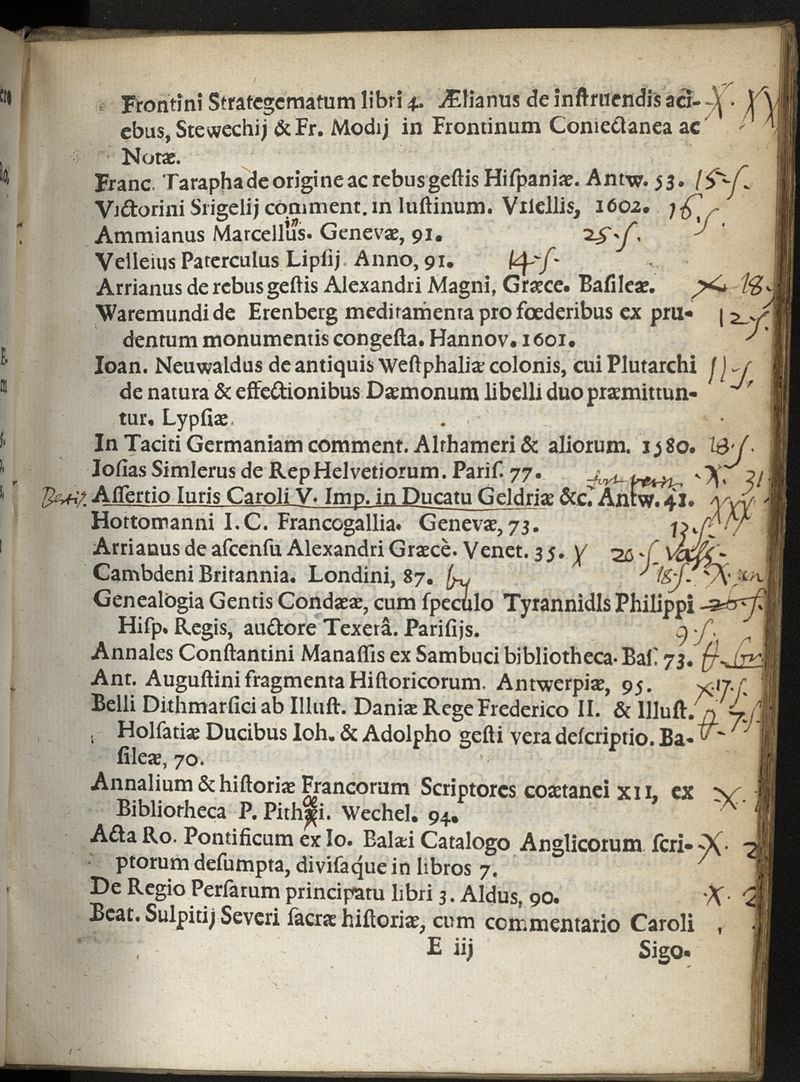 Frontini Strategematum libri 4. Ælianus de inſtruendis aci- X. XX
ebus, Stewechij & Fr. Modij in Frontinum Coniectanea ac
Notæ.
Franc. Tarapha de origine ac rebus geſtis Hiſpaniæ. Antw. 53. 15-ſ.
Victorini Srigelij comment. in Iuſtinum. Vrſellis, 1602. 16.
Ammianus Marcellus. Genevæ, 91. 25-ſ.
Velleius Paterculus Lipſij. Anno, 91. 14-ſ-
Arrianus de rebus geſtis Alexandri Magni, Græce. Baſileæ. 18
Waremundi de Erenberg meditamenta pro fœderibus ex pru- 12-ſ.
dentum monumentis congeſta. Hannov. 1601.
Ioan. Neuwaldus de antiquis Weſtphaliæ colonis, cui Plutarchi 11-ſ
de natura & effectionibus Dæmonum libelli duo præmittun-
tur. Lypſiæ.
In Taciti Germaniam comment. Althameri & aliorum. 1580. 18-ſ.
Ioſias Simlerus de Rep Helvetiorum. Pariſ. 77. X. 31
Aſſertio Iuris Caroli V. Imp. in Ducatu Geldriæ &c. Antw. 41. XXX
Hottomanni I. C. Francogallia. Genevæ, 73. 13-ſ
Arrianus de aſcenſu Alexandri Græcè. Venet. 35. 20-ſ
Cambdeni Britannia. Londini, 87. 18-ſ. X
Genealogia Gentis Condææ, cum ſpeculo TyrannidIs Philippi 26-ſ.
Hiſp. Regis, auctore Texerâ. Pariſijs. 9-ſ.
Annales Conſtantini Manaſſis ex Sambuci bibliotheca. Baſ. 73.
Ant. Auguſtini fragmenta Hiſtoricorum. Antwerpiæ, 95. X 17-ſ.
Belli Dithmarſici ab Illuſt. Daniæ Rege Frederico II. & Illuſt. 7-ſ
Holſatiæ Ducibus Ioh. & Adolpho geſti vera deſcriptio. Ba-
ſileæ, 70.
Annalium & hiſtoriæ Francorum Scriptores coætanei XII, ex X
Bibliotheca P. Pithœi. Wechel. 94.
Acta Ro. Pontificum ex Io. Balæi Catalogo Anglicorum ſcri- X. 2
ptorum deſumpta, diviſaque in libros 7.
De Regio Perſarum principatu libri 3. Aldus, 90. X. 2
Beat. Sulpitij Severi ſacræ hiſtoriæ, cum commentario Caroli
E iij Sigo.